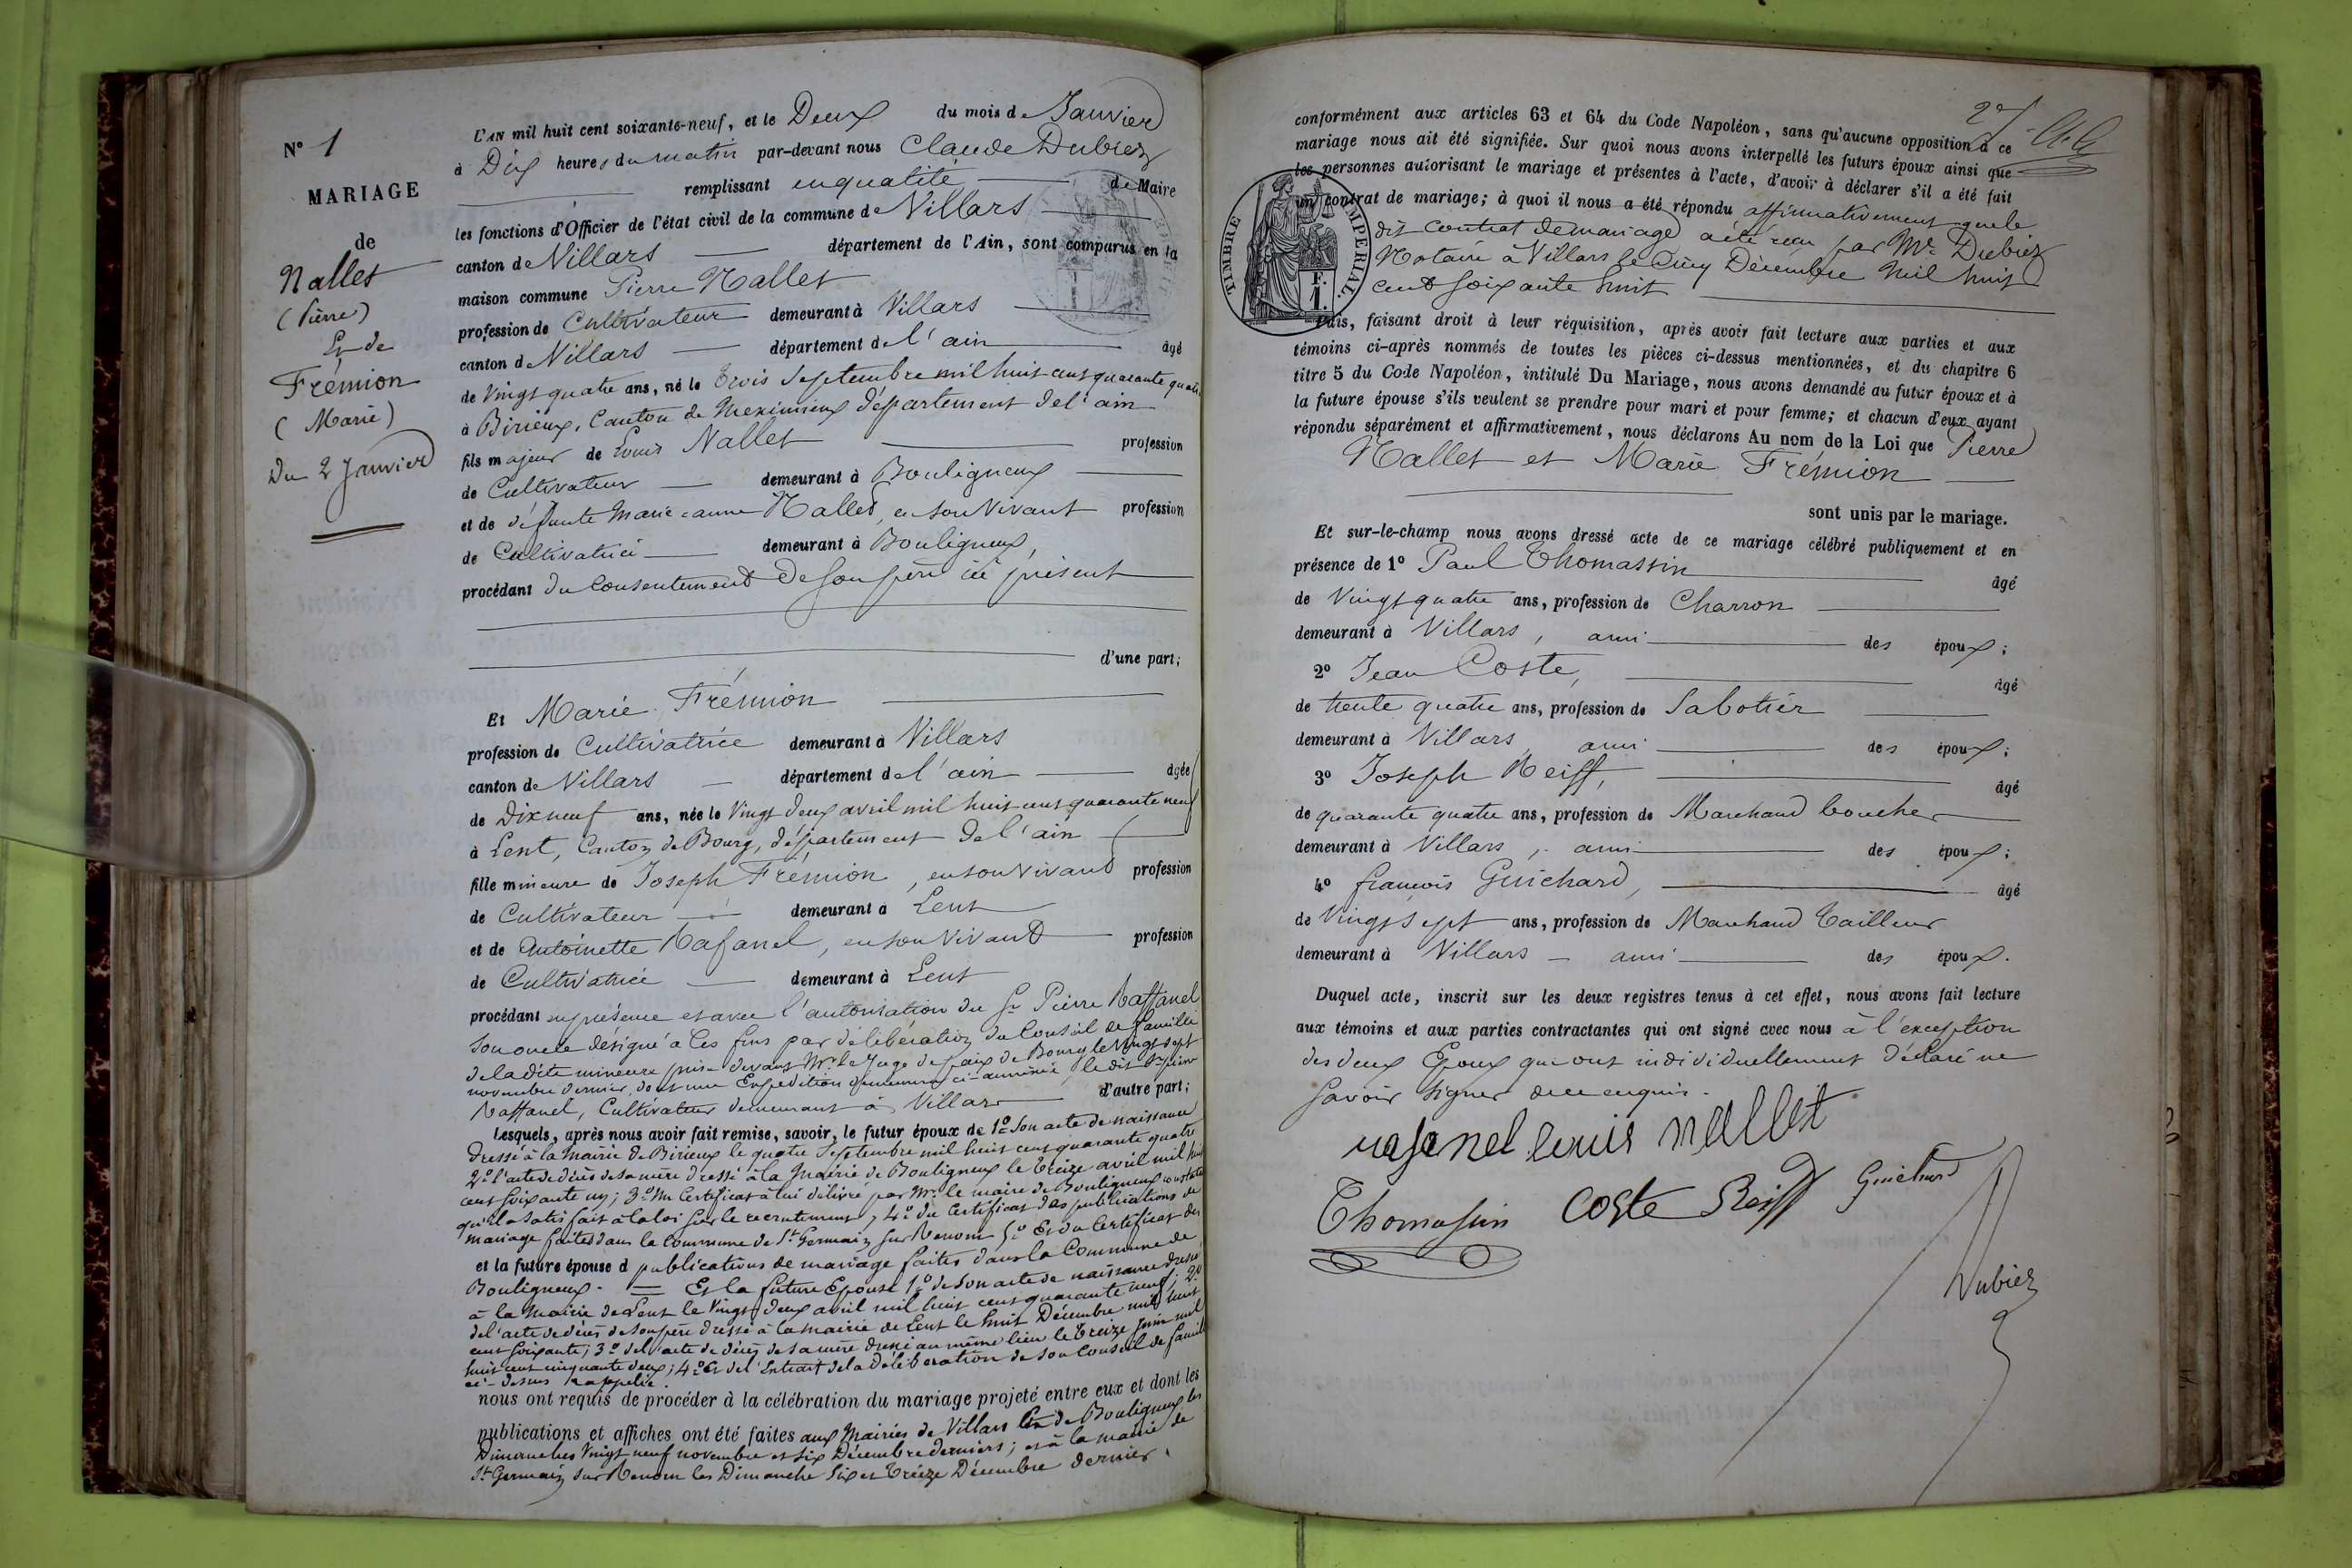 N° 1
MARIAGE
de
Nallet
(Pierre)
Et de
Frémion
(Marie)
Du 2 Janvier
L'AN mil huit cent soixante-neuf, et le Deux du mois de Janvier
à Dix heures du matin par-devant nous Claude Dubiez
remplissant en qualité de Maire
les fonctions d'Officier de l'état civil de la commune de Villars
canton de Villars département de l'Ain, sont comparus en la
maison commune Pierre Nallet
profession de Cultivateur demeurant à Villars
canton de Villars département de l'ain âgé
de Vingt quatre ans, né le Trois Septembre mil huit cent quarante quatre
à Birieux, Canton de Meximieux département de l'ain
fils majeur de Louis Nallet profession
de Cultivateur demeurant à Bouligneux
et de défunte Marie Jeanne Nallet, en son vivant profession
de Cultivatrice demeurant à Bouligneux,
procédant du consentement de son père ici présent
d'une part;
Et Marie Frémion
profession de Cultivatrice demeurant à Villars
canton de Villars département de l'ain âgée
de Dix neuf ans, née le Vingt deux avril mil huit cent quarante neuf
à Lent, Canton de Bourg, département de l'ain
fille mineure de Joseph Frémion, en son vivant profession
de Cultivateur demeurant à Lent
et de Antoinette Rafanel, en son vivant profession
de Cultivatrice demeurant à Lent
procédant en présence et avec l'autorisation du Sr Pierre Raffanel
son oncle désigné à ces fins par délibération du Conseil de famille
de la dite mineure prise devant Mr le Juge de paix de Bourg le Vingt sept
novembre dernier, dont une Expédition demeure ci-annexée, le dit Sr Pierre
Raffanel, Cultivateur demeurant à Villars d'autre part;
Lesquels, après nous avoir fait remise, savoir, le futur époux de 1° Son acte de naissance
dressé à la Mairie de Birieux le quatre Septembre mil huit cent quarante quatre
2° l'acte de décès de sa mère dressé à la Mairie de Bouligneux le Treize avril mil huit
cent soixante un; 3° Un Certificat à lui délivré par Mr le maire de Bouligneux constatant
qu'il a satisfait à la loi sur le recrutement; 4° du Certificat des publications de
mariage faites dans la Commune de St Germain sur Renom 5° Et du Certificat des
et la future épouse d publications de mariage faites dans la Commune de
Bouligneux. = Et la future Epouse 1° de Son acte de naissance dressé
à la Mairie de Lent le Vingt deux avril mil huit cent quarante neuf; 2°
de l'acte de décès de Son père dressé à la mairie de Lent le huit Décembre mil huit
cent soixante; 3° de l'acte de décès de sa mère dressé au même lieu le Treize juin mil
huit cent cinquante deux; 4° Et de l'Extrait de la Délibération de son Conseil de famille
ci-dessus rappelée.
nous ont requis de procéder à la célébration du mariage projeté entre eux et dont les
publications et affiches ont été faites aux Mairies de Villars Et de Bouligneux les
Dimanches Vingt neuf novembre et six Décembre derniers; et à la mairie de
St Germain sur Renom les Dimanche Six et Treize Décembre dernier.
conformément aux articles 63 et 64 du Code Napoléon, sans qu'aucune opposition à ce
mariage nous ait été signifiée. Sur quoi nous avons interpellé les futurs époux ainsi que
les personnes autorisant le mariage et présentes à l'acte, d'avoir à déclarer s'il a été fait
un contrat de mariage; à quoi il nous a été répondu affirmativement que le
dit Contrat de mariage a été reçu par Me Dubiez
Notaire à Villars le Cinq Décembre Mil huit
cent soixante huit
TIMBRE IMPERIAL.
1 F.
Puis, faisant droit à leur réquisition, après avoir fait lecture aux parties et aux
témoins ci-après nommés de toutes les pièces ci-dessus mentionnées, et du chapitre 6
titre 5 du Code Napoléon, intitulé Du Mariage, nous avons demandé au futur époux et à
la future épouse s'ils veulent se prendre pour mari et pour femme; et chacun d'eux ayant
répondu séparément et affirmativement, nous déclarons Au nom de la Loi que Pierre
Nallet et Marie Frémion
sont unis par le mariage.
Et sur-le-champ nous avons dressé acte de ce mariage célébré publiquement et en
présence de 1° Paul Thomassin âgé
de Vingt quatre ans, profession de Charron
demeurant à Villars, ami des époux;
2° Jean Coste, âgé
de trente quatre ans, profession de Sabotier
demeurant à Villars, ami des époux;
3° Joseph Reiff, âgé
de quarante quatre ans, profession de Marchand boucher
demeurant à Villars, ami des époux;
4° françois Guichard, âgé
de Vingt sept ans, profession de Marchand Tailleur
demeurant à Villars - ami des époux.
Duquel acte, inscrit sur les deux registres tenus à cet effet, nous avons fait lecture
aux témoins et aux parties contractantes qui ont signé avec nous à l'exception
des deux Epoux qui ont individiduellement déclaré ne
savoir signer de ce enquis.
rafanel louis nallet
Thomassin Coste Reiff Guichard
Dubiez